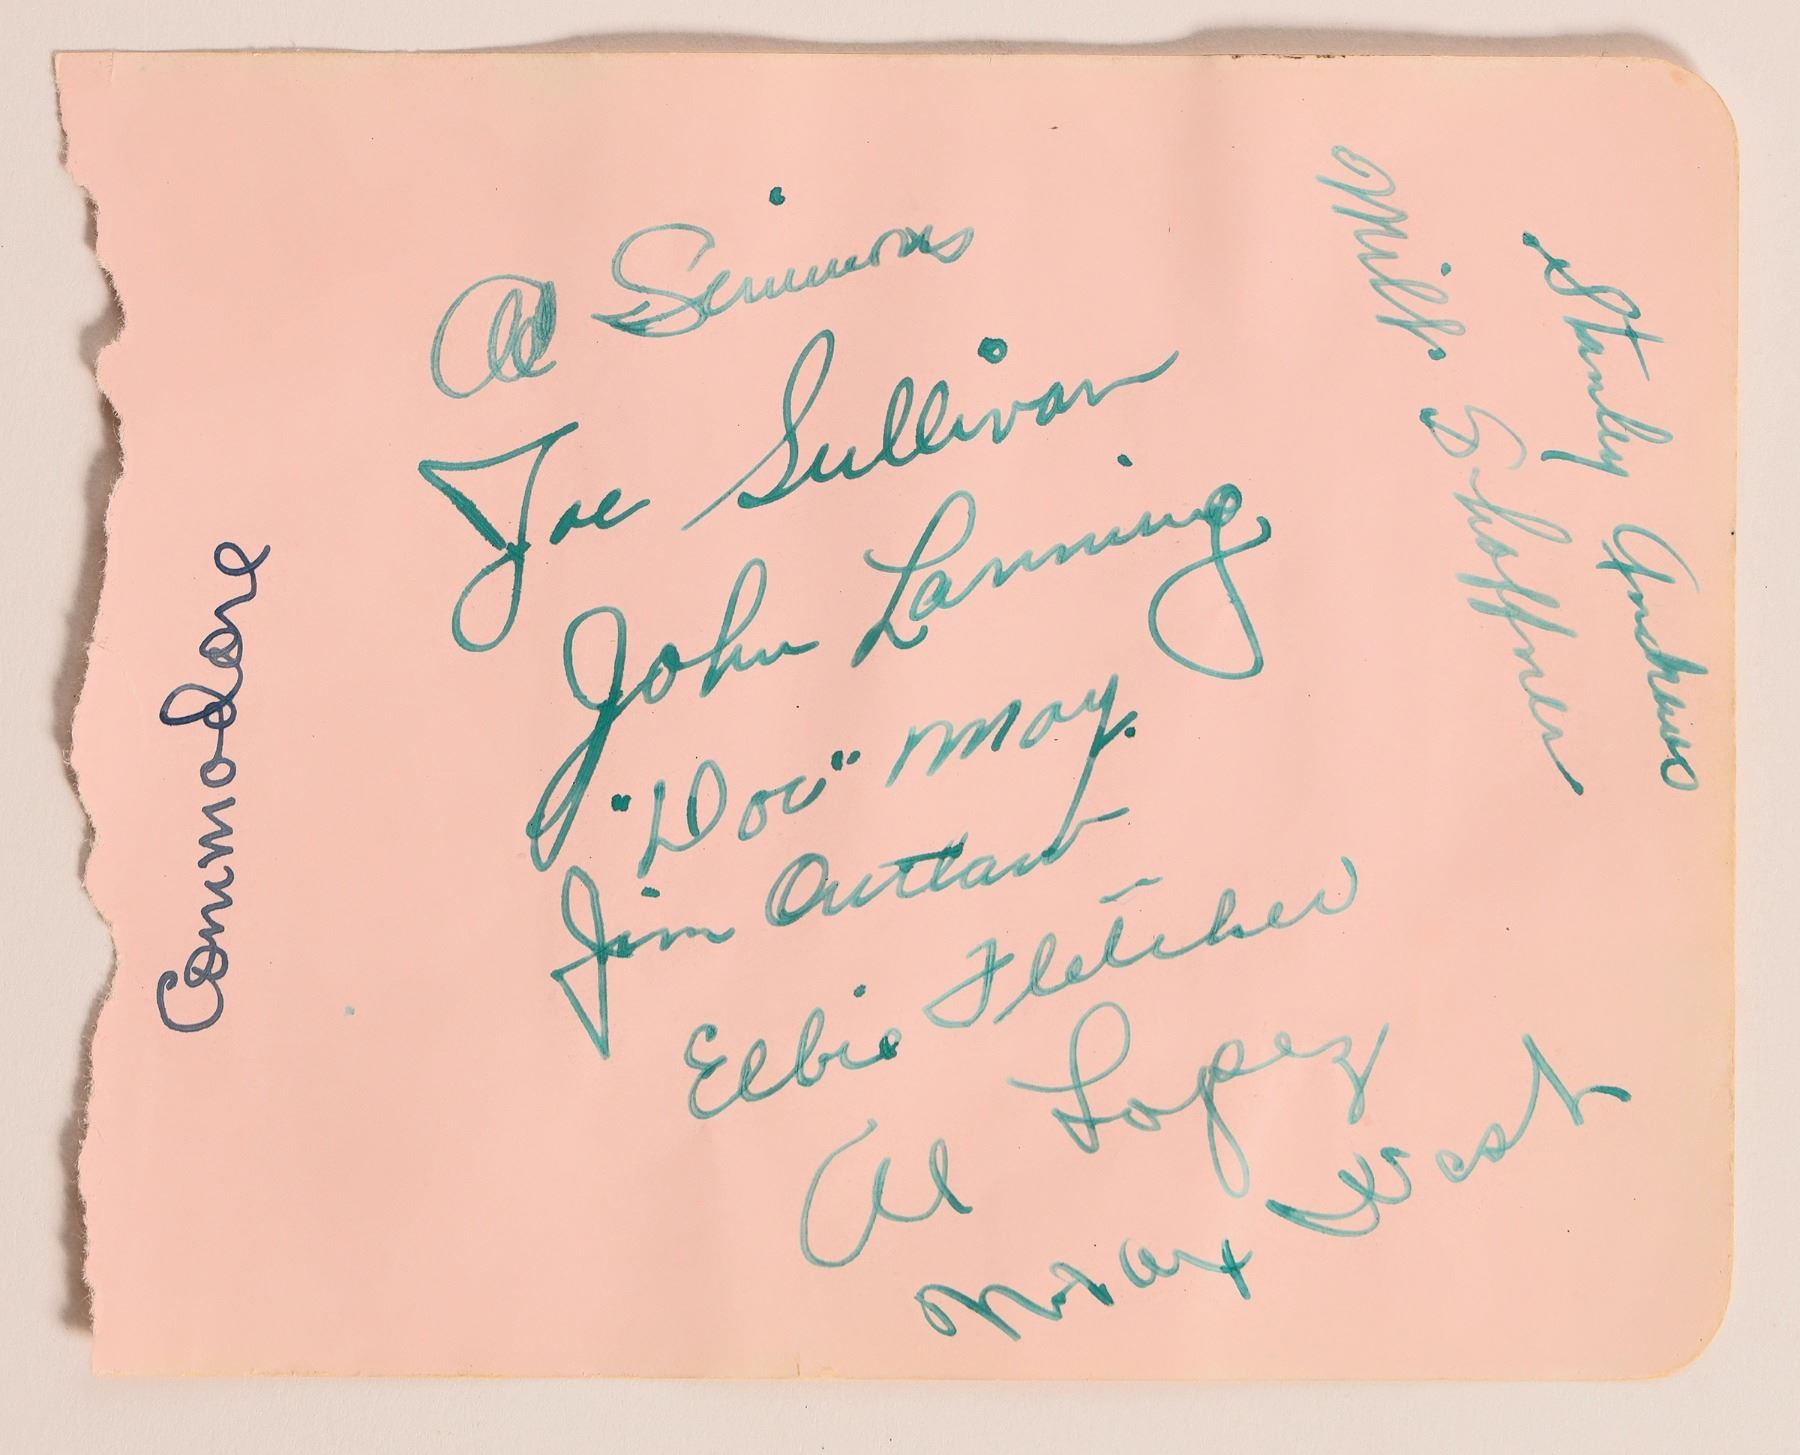 Al Simmons
Joe Sullivan
John Lanning
"Doc" May.
Jim Outlaw
Elbie Fletcher
Al Lopez
Max West
Milt. Shoffner
Stanley Andrews
Commodore